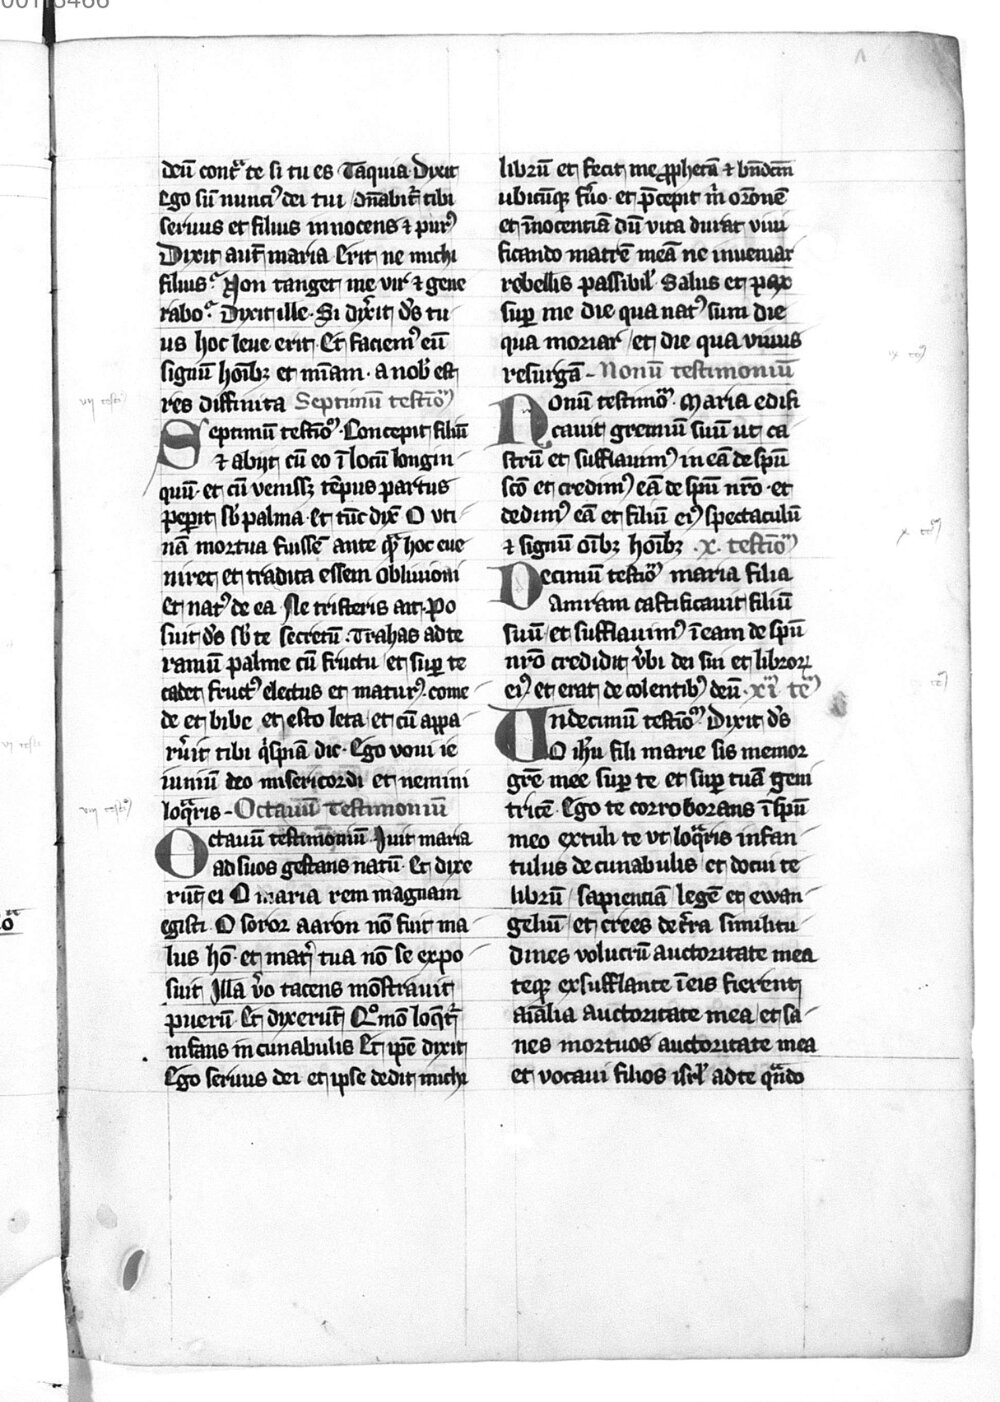 deū contᵃ te si tu es Taquia. Dixit
Ego sū nunciꝰ dei tui dn̄abit᷑ tibi
seruus et filius innocens ⁊ purꝰ
Dixit aut̄ maria Erit ne michi
filius. Non tanget me vir ⁊ gene
rabo. Dixit ille. Si dix᷑it dꝰs tu
us hoc leue erit. Et faciemꝰ eū
signū hoībꝫ et mīam. a nob̄ est
res diffinita Septimū testiōᵐ
Septimū testiōᵐ. Concepit filiū
⁊ abijt cū eo ī locū longin
quū. et cū venissꝫ tēpus partus
peperit sb̄ palma. Et tūc dix̄ O vti
nā mortua fuissē ante qᵃm hoc eue
niret et tradita essem obliuioni
et natꝰ de ea. Ne tristeris ait. Po
suit dꝰs sb̄ te secretū. Trahas ad te
ramū palme cū fructu et suꝑ te
cadet fructꝰ electus et maturꝰ. come
de et bibe et esto leta et cū appa
ru᷑it tibi qⁱspiā dic. Ego voui ie
iuniū deo misericordi et nemini
loqᵃris. Octauū Testimonium
Octauū testimoniū. Iuit maria
ad suos gestans natū. Et dixe
rūt ei O maria rem magnam
egisti. O soror aaron nō fuit ma
lus hō. et mat᷑ tua nō se expo
suit Illa v̄o tacens mōstrauit
puerū. Et dixerūt Qᵒmō loqt᷑
infans in cunabulis Et ip̄e dixit
Ego seruus dei et ipse dedit michi
librū et fecit me ꝓphetā ⁊ bn̄dcm̄
ubicūqꝫ fu᷑o. et p̄cepit m̄ or̄onē
et īnocentiā dū vita durat viui
ficando matrē meā ne inueniar
rebellis passibil᷑. Salus et pax
suꝑ me die qua natꝰ sum die
qua moriar et die qua viuus
resurgā. Nonū testimoniū
Nonū testimōᵐ. Maria edifi
cauit gremiū suū ut ca
strū et sufflauimꝰ in eā de spū
scō et credimꝰ eā de spū nr̄o. et
dedimꝰ eā et filiū eiꝰ spectaculū
⁊ signū oībꝫ hoībꝫ. x. testiōᵐ
Decimū testiōᵐ maria filia
Amram castificauit filiū
suū et sufflauimꝰ ī eam de spū
nr̄o credidit v̄bi dei sui et libroꝝ
eiꝰ et erat de colentibꝰ deū. xi tēᵐ
Undecimū testiōᵐ Dixit dꝰs
O ih̄u fili marie sis memor
gr̄e mee suꝑ te et suꝑ tuā geni
tricē. Ego te corroborans ī spū
meo extuli te vt loqᵃris infan
tulus de cunabulis et docui te
librū sapientiā legē et ewan
geliū et crees de tr̄a similitu
dines volucrū auctoritate mea
teqꝫ exsufflante ī eis fierent
aīalia auctoritate mea et sa
nes mortuos auctoritate mea
et vocaui filios isrl̄ ad te qn̄do